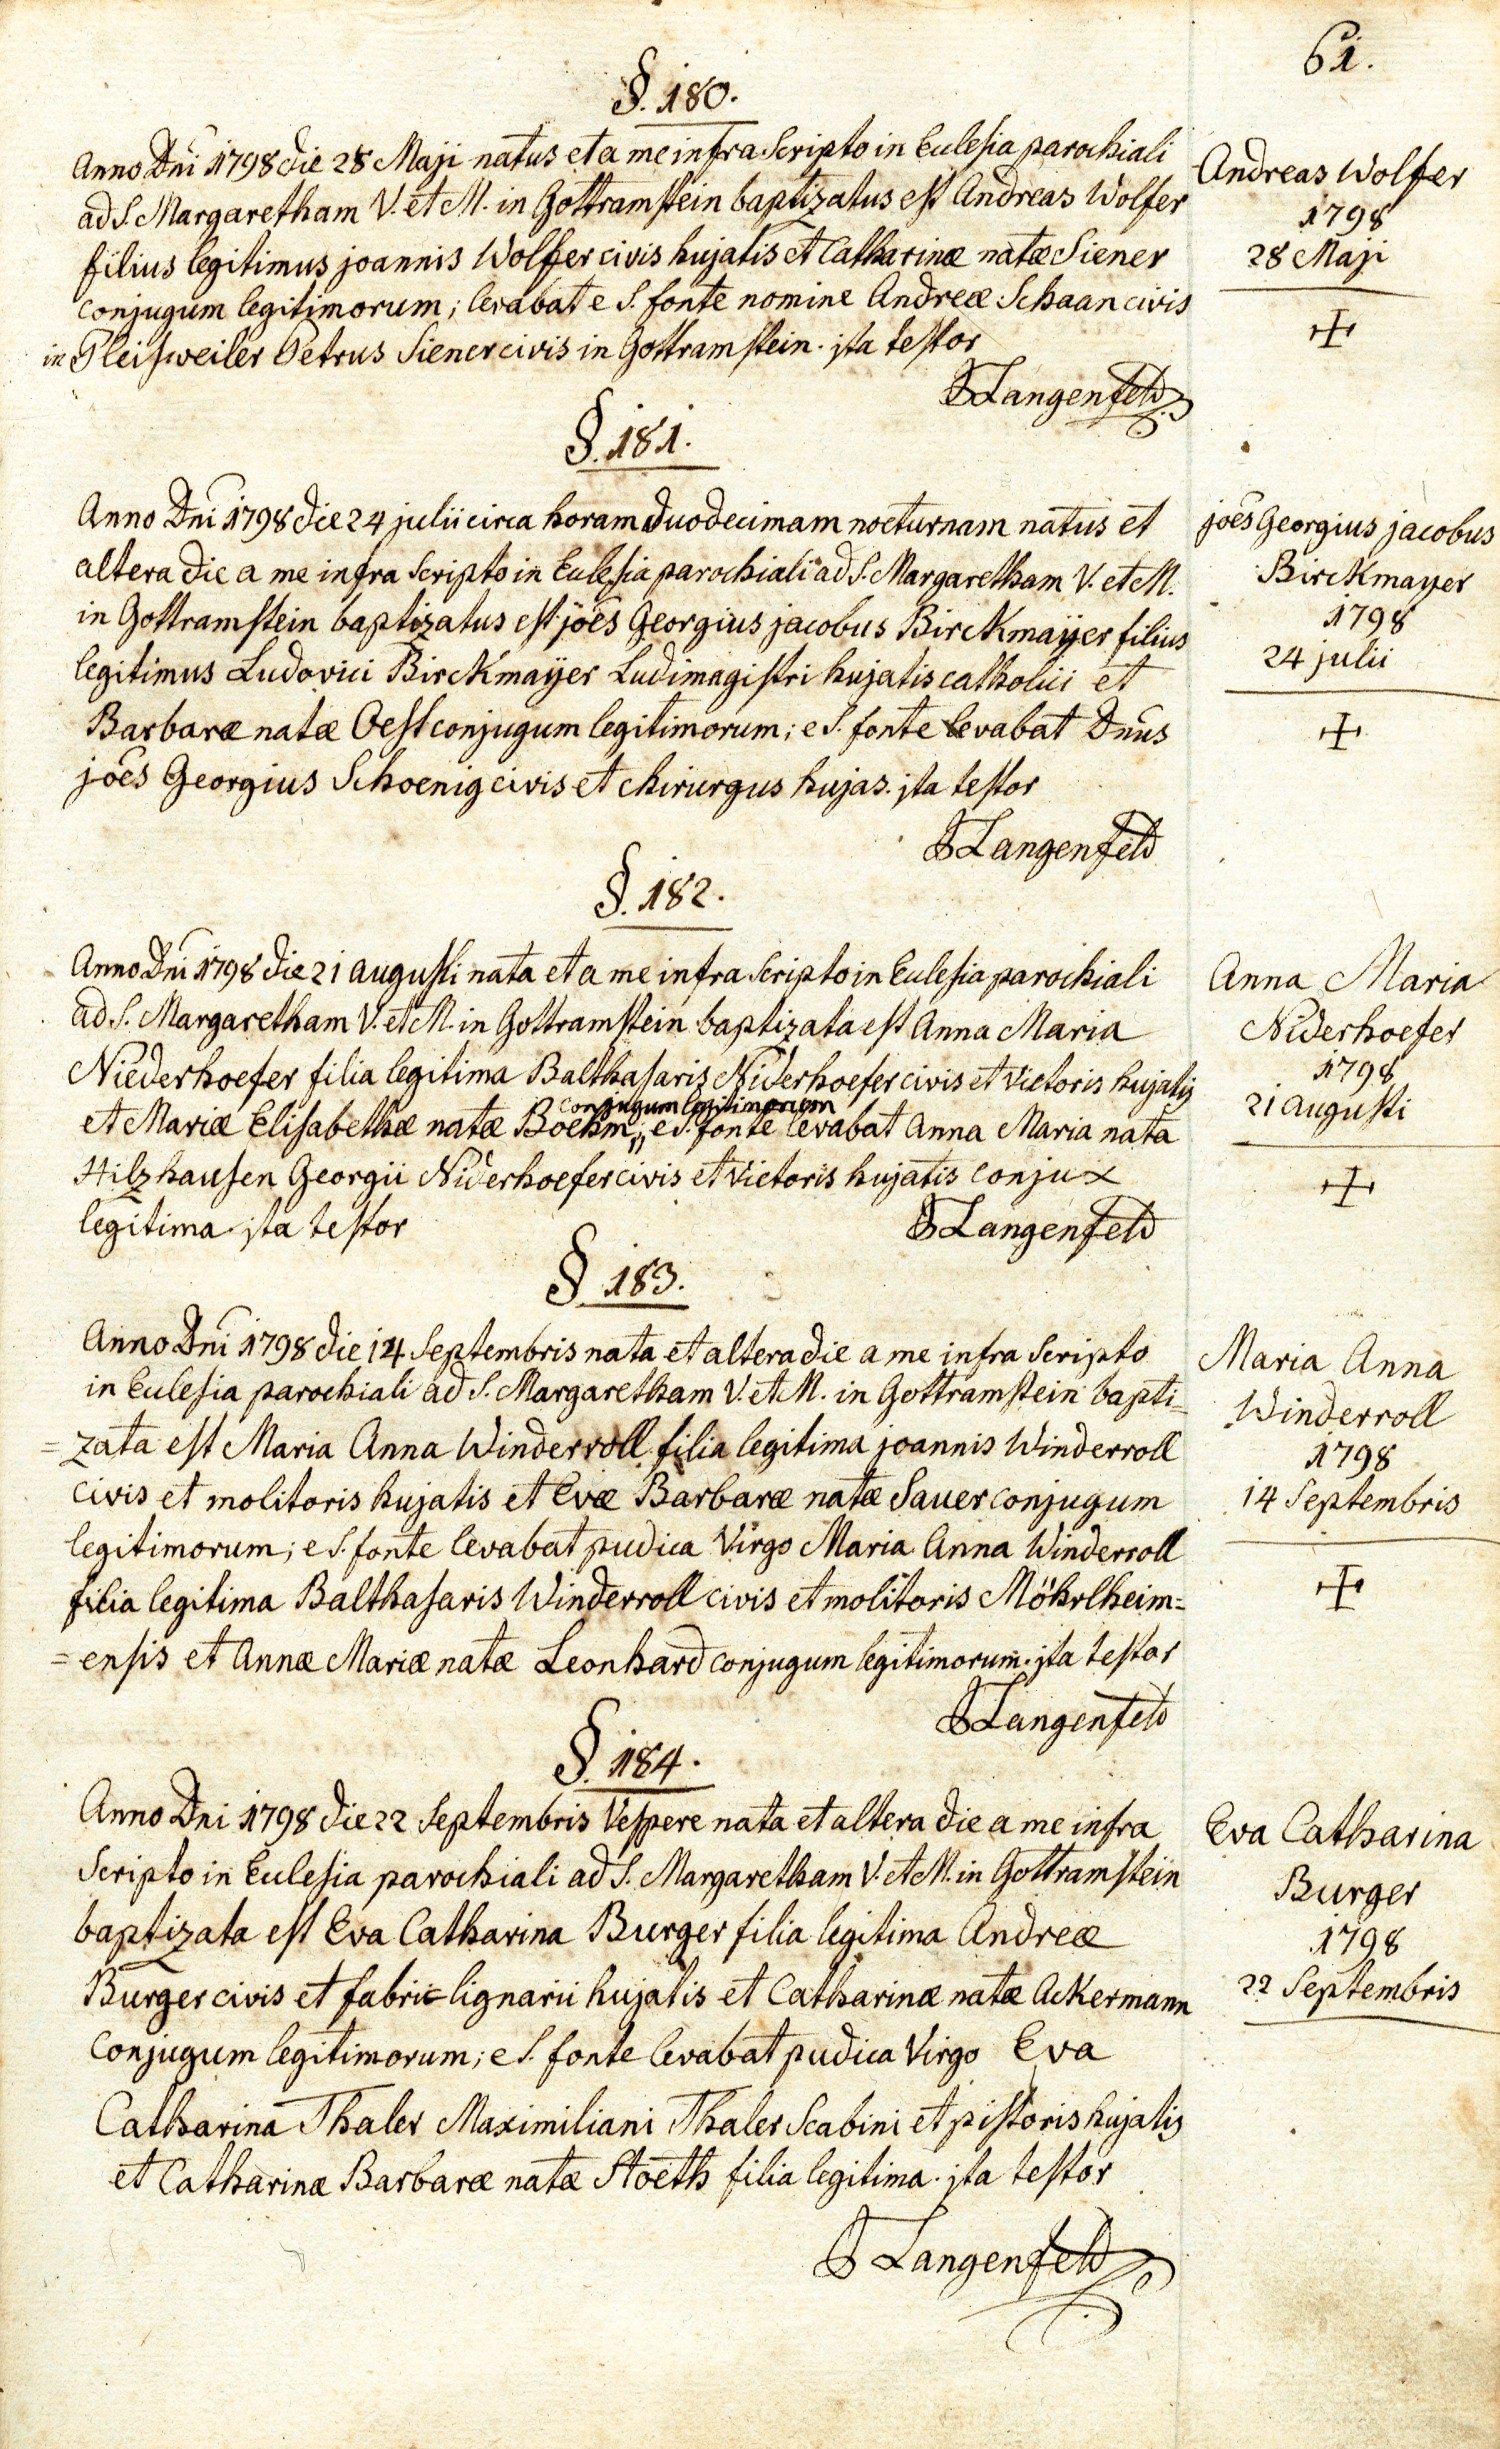 61.
§. 180.
Anno Dni 1798 die 28 Maji natus et a me infra scripto in Eclesia parochiali
ad S. Margaretham V. et M. in Gottramstein baptizatus est Andreas Wolfer
filius legitimus joannis Wolffer civis hujatis et Catharinæ natæ Siener
conjugum legitimorum; levabat e S. fonte nomine Andreæ Schaan civis
in Pleisweiler Petrus Siener civis in Gottramstein. jta testor
Langenfeld
Andreas Wolfer
1798
28 Maji
§. 181.
Anno Dni 1798 die 24 julii circa horam duodecimam nocturnam natus et
altera die a me infra scripto in Eclesia parochiali ad S. Margaretham V. et M.
in Gottramstein baptizatus est joes Georgius jacobus Birckmaÿer filius
legitimus Ludovici Birckmaÿer Ludimagistri hujatis catholici et
Barbaræ natæ Oest conjugum legitimorum; e S. fonte levabat Dnus
joes Georgius Schoenig civis et chirurgus hujas. jta testor
Langenfeld
joes Georgius jacobus
Birckmayer
1798
24 julii
§. 182.
Anno Dni 1798 die 21 augusti nata et a me infra scripto in Eclesia parochiali
ad S. Margaretham V. et M. in Gottramstein baptizata est Anna Maria
Niederhoefer filia legitima Balthasaris Niderhoefer civis et vietoris hujatis
conjugum legitimorum
et Mariæ Elisabethæ natæ Boehm,, e S. fonte levabat Anna Maria nata
Hilzhausen Georgii Niderhoefer civis et vietoris hujatis conjux
legitima. jta testor
Langenfeld
Anna Maria
Niderhoefer
1798
21 augusti
§ 183.
Anno Dni 1798 die 14 Septembris nata et altera die a me infra scripto
in Eclesia parochiali ad S. Margaretham V. et M. in Gottramstein bapti=
= zata est Maria Anna Winderroll filia legitima joannis Winderroll
civis et molitoris hujatis et Evæ Barbaræ natæ Sauer conjugum
legitimorum; e S. fonte levabat pudica Virgo Maria Anna Winderroll
filia legitima Balthasaris Winderroll civis et molitoris Möhrlheim=
= ensis et Annæ Mariæ natæ Leonhard conjugum legitimorum. jta testor
Langenfeld
Maria Anna
Winderroll
1798
14 Septembris
§. 184.
Anno Dni 1798 die 22 Septembris Vespere nata et altera die a me infra
scripto in Eclesia parochiali ad S. Margaretham V. et M. in Gottramstein
baptizata est Eva Catharina Burger filia legitima Andreæ
Burger civis et fabri lignarii hujatis et Catharinæ natæ Ackermann
conjugum legitimorum; e S. fonte levabat pudica Virgo Eva
Catharina Thaler Maximiliani Thaler Scabini et pistoris hujatis
et Catharinæ Barbaræ natæ Stoeth filia legitima. jta testor
Langenfeld
Eva Catharina
Burger
1798
22 Septembris